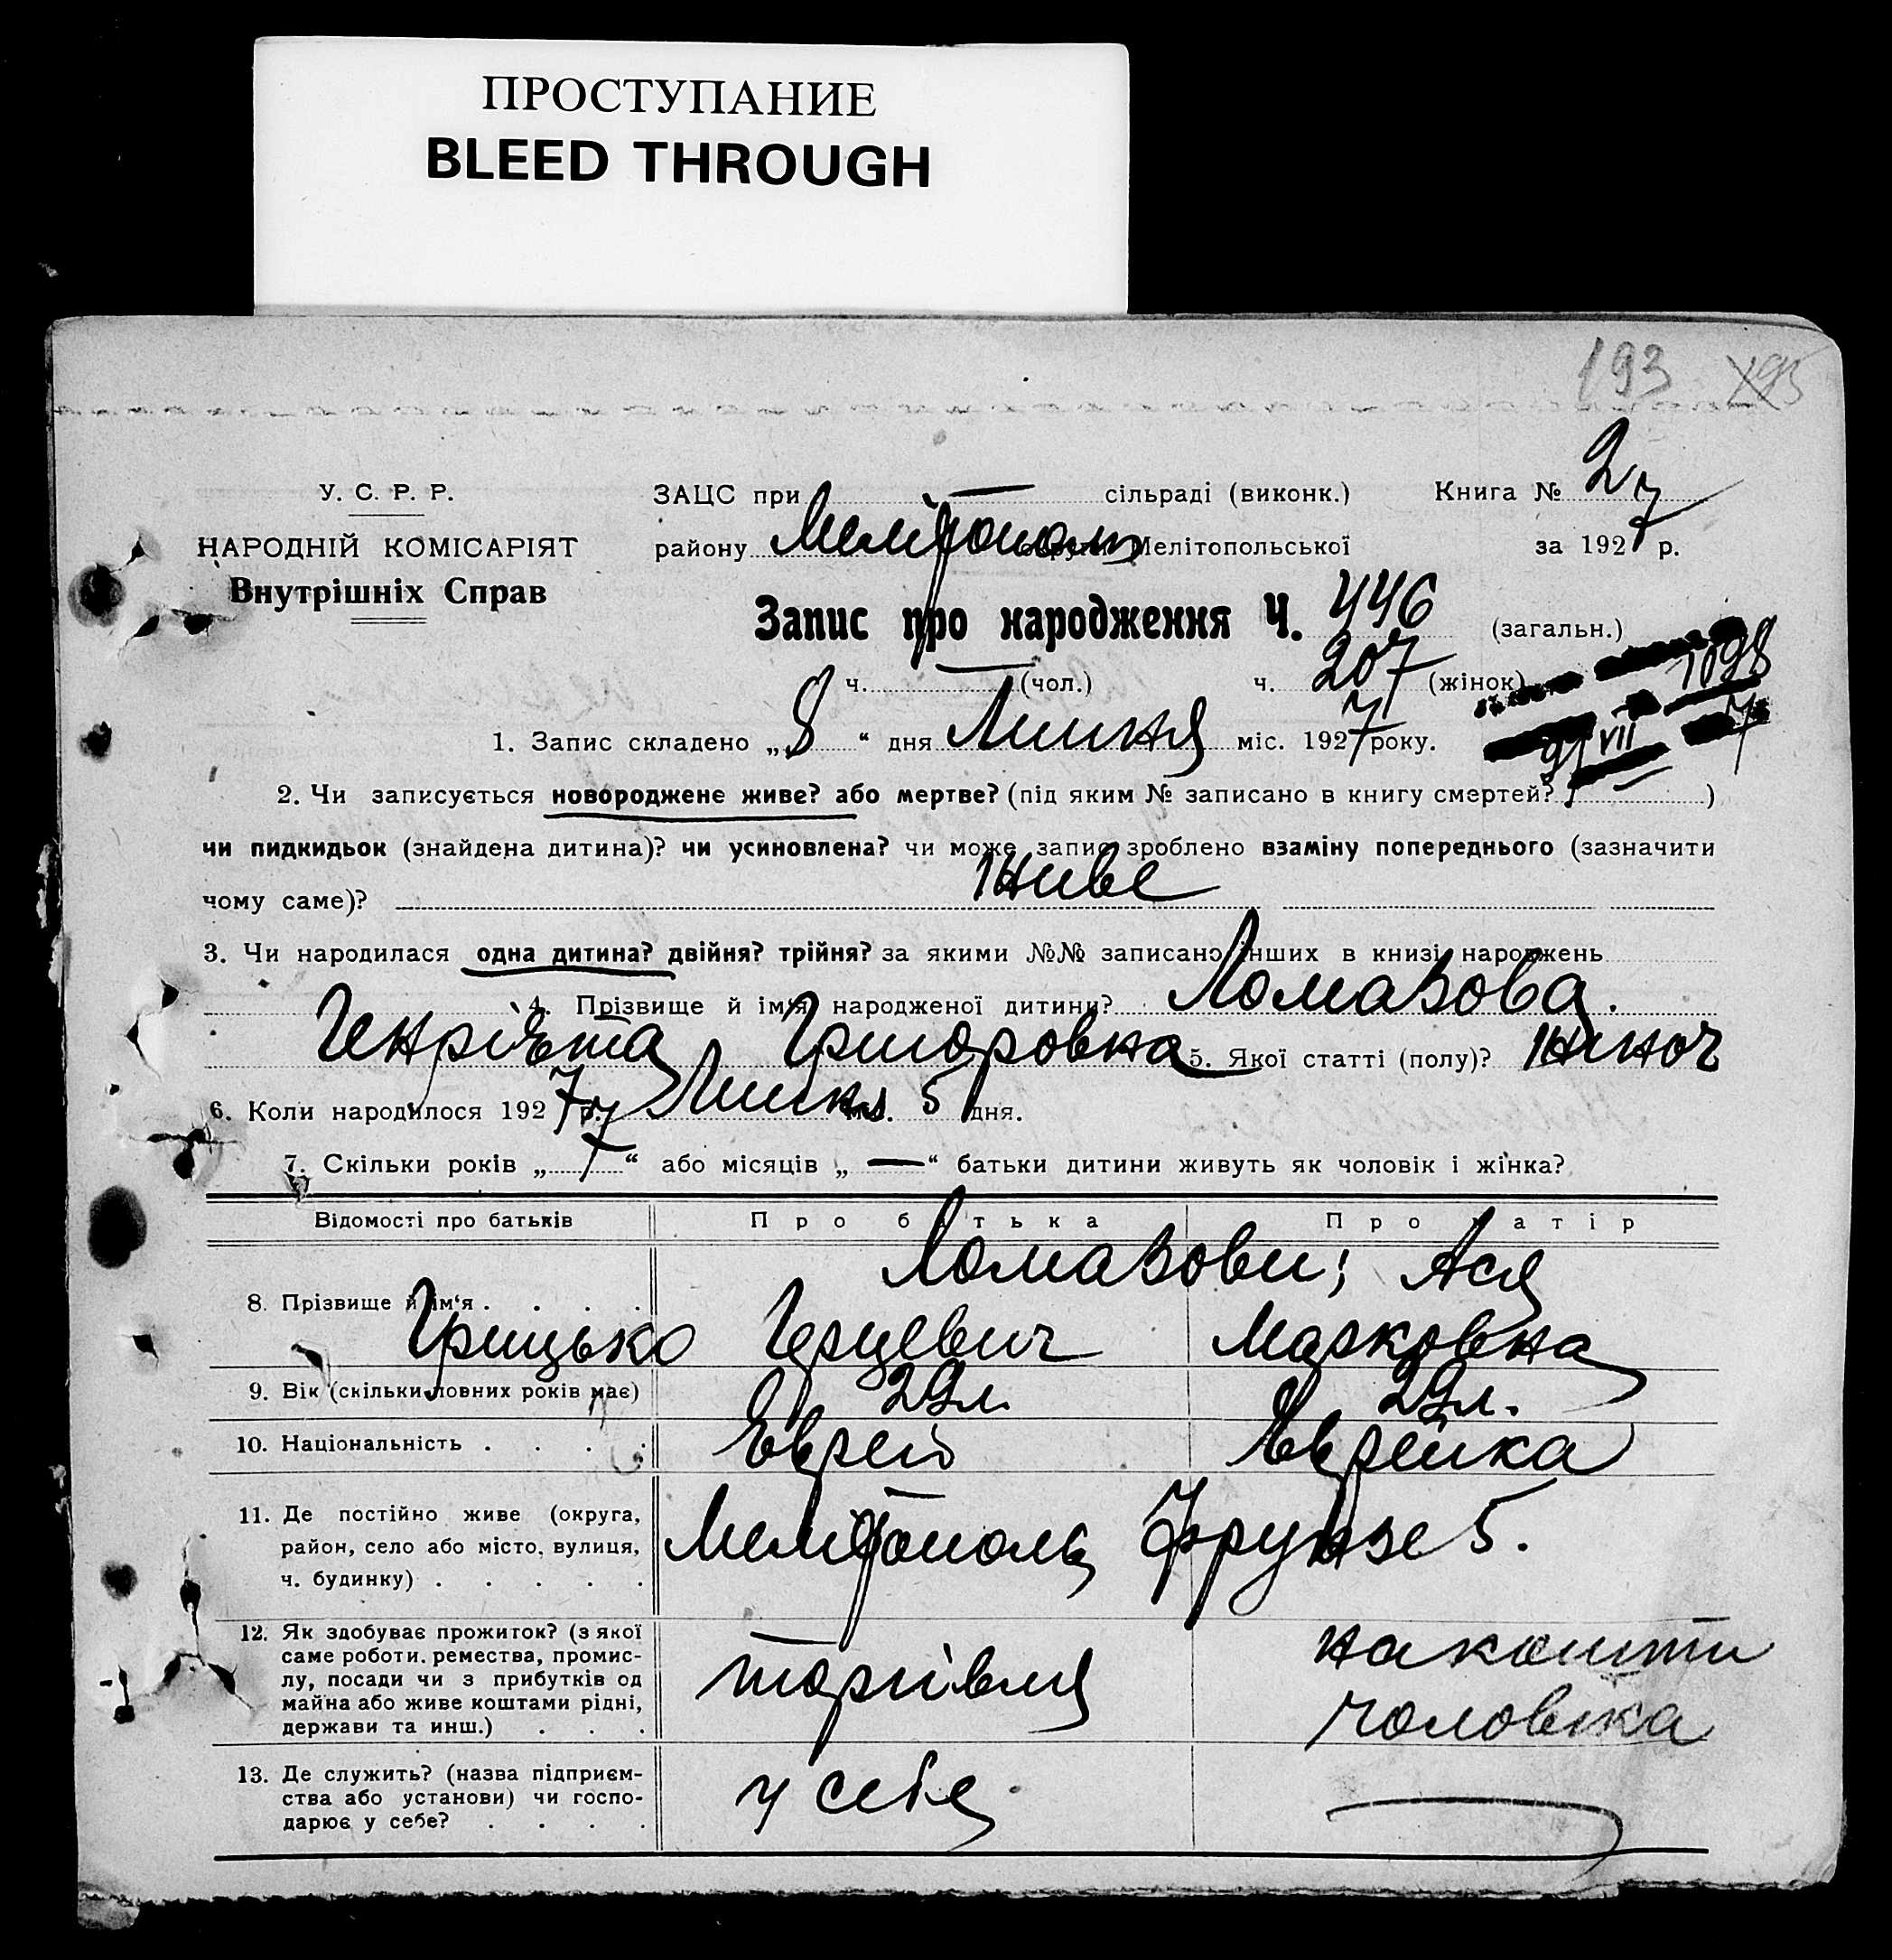 ПРОСТУПАНИЕ
BLEED THROUGH
193 193
У. С. Р. Р.
НАРОДНІЙ КОМІСАРІЯТ
Внутрішніх Справ
ЗАЦС при — сільраді (виконк.) Книга № 2
району Мелітополь округи Мелітопольської за 1927 р.
Запис про народження Ч. 446 (загальн.)
ч. — (чол.) ч. 207 (жінок)
1098
VII 7
1. Запис складено „8“ дня Липня міс. 1927 року.
2. Чи записується новороджене живе? або мертве? (під яким № записано в книгу смертей? )
чи пидкидьок (знайдена дитина)? чи усиновлена? чи може запис зроблено взаміну попереднього (зазначити
чому саме)? Живе
3. Чи народилася одна дитина? двійня? трійня? за якими №№ записано інших в книзі народжень
4. Прізвище й ім'я народженої дитини? Ломазова.
Генріета Григоровна 5. Якої статті (полу)? жіноч
6. Коли народилося 1927 р. Липня міс. 5 дня.
7. Скільки років „7“ або місяців „—“ батьки дитини живуть як чоловік і жінка?
Відомості про батьків Про батька Про матір
8. Прізвище й ім'я . . . . Ломазови; Ася
Грицько Герцевич Марковна
9. Вік (скільки повних років має) 29 л. 29 л.
10. Національність . . . . Еврей Еврейка
11. Де постійно живе (округа,
район, село або місто, вулиця,
ч. будинку) . . . . . Мелітополь Фрунзе 5.
12. Як здобуває прожиток? (з якої
саме роботи. ремества, промис-
лу, посади чи з прибутків од
майна або живе коштами рідні,
держави та инш.) . . . торгівля на кошти
чоловіка
13. Де служить? (назва підприєм-
ства або установи) чи госпо-
дарює у себе? . . . . у себе —